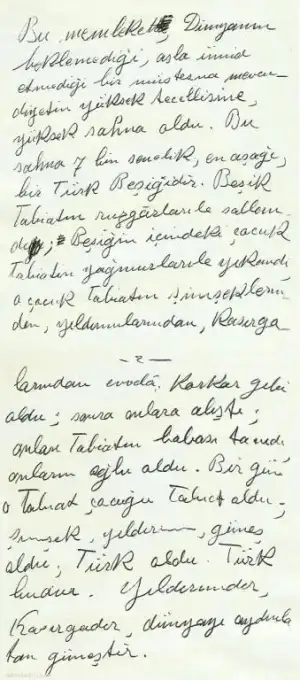 Bu, memleket, Dünyanın
beklemediği, asla ümid
etmediği bir müstesna mevcu-
diyetin yüksek tecellisine,
yüksek sahna oldu. Bu
sahna 7 bin senelik, en aşağı,
bir Türk Beşiğidir. Beşik
Tabiatın rüzgârlarıle sallan-
dı; Beşiğin içindeki çocuk
Tabiatın yağmurlarıle yıkandı,
o çocuk Tabiatın şimşeklerin-
den, yıldırımlarından, kasırga
- 2 -
larından evvelâ, korkar gibi
oldu; sonra onlara alıştı;
onları Tabiatın babası tanıdı,
onların oğlu oldu. Bir gün
o Tabiat çocuğu Tabiat oldu;
şimşek, yıldırım, güneş
oldu; Türk oldu. Türk
budur. Yıldırımdır,
Kasırgadır, dünyayı aydınla
tan güneştir.